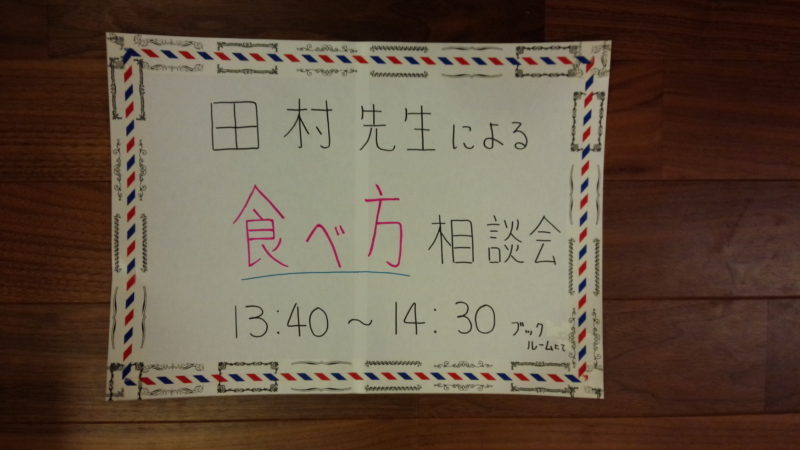 田村先生による
食べ方相談会
13:40～14:30 ブック
ルームにて